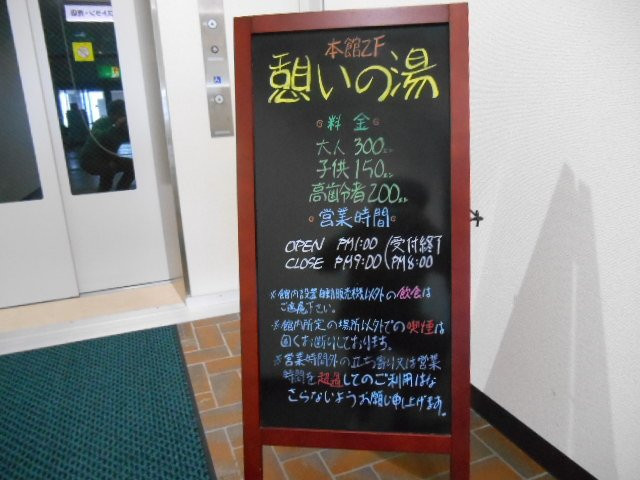 本館2F
憩いの湯
料金
大人 300円
子供 150円
高齢者 200円
営業時間
OPEN PM1:00 (受付終了
CLOSE PM9:00 (PM8:00
※館内設置自動販売機以外の飲食は
ご遠慮下さい。
※館内所定の場所以外での喫煙は
固くお断りしております。
※営業時間外の立ち寄り又は営業
時間を超過してのご利用はな
さらないようお願い申し上げます。